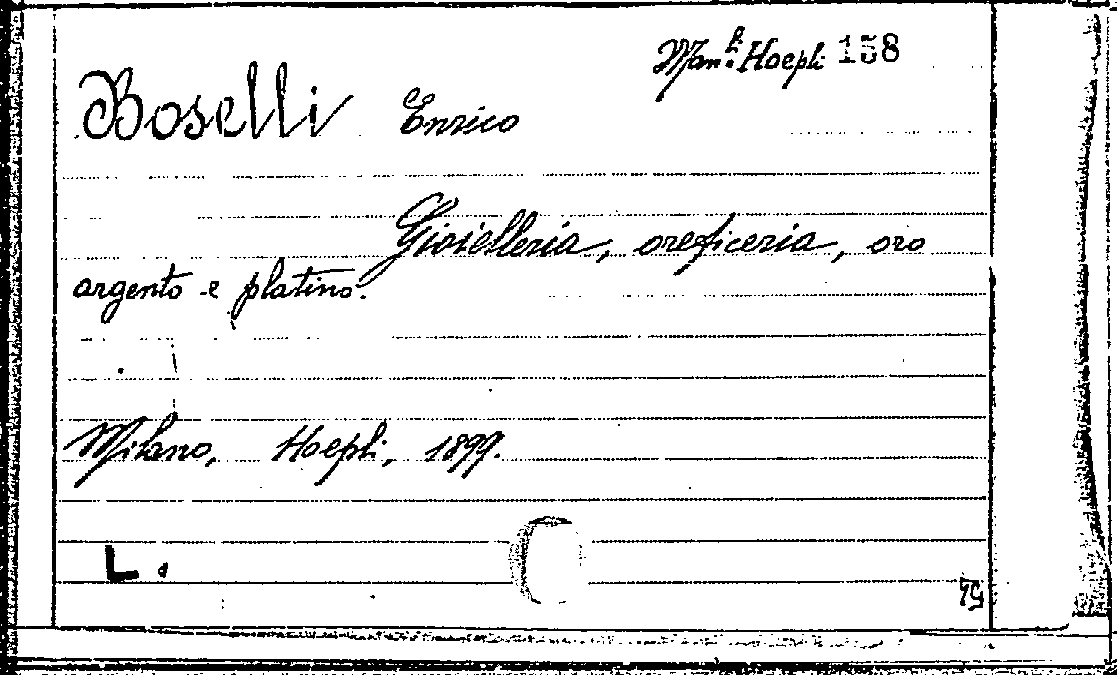 Man.li Hoepli 158
Boselli Enrico
Gioielleria, oreficeria, oro
argento e platino.
Milano, Hoepli, 1899.
L.